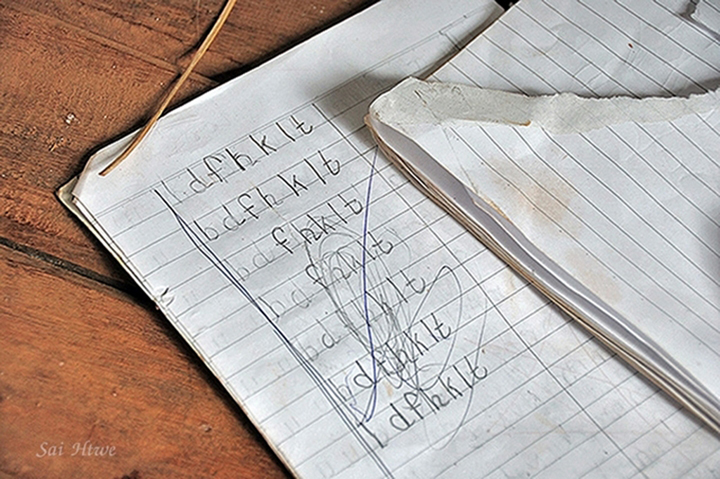 bdfhklt
bdfhklt
bdfhklt
bdfhklt
bdfhklt
bdfhklt
bdfhklt
Sai Htwe